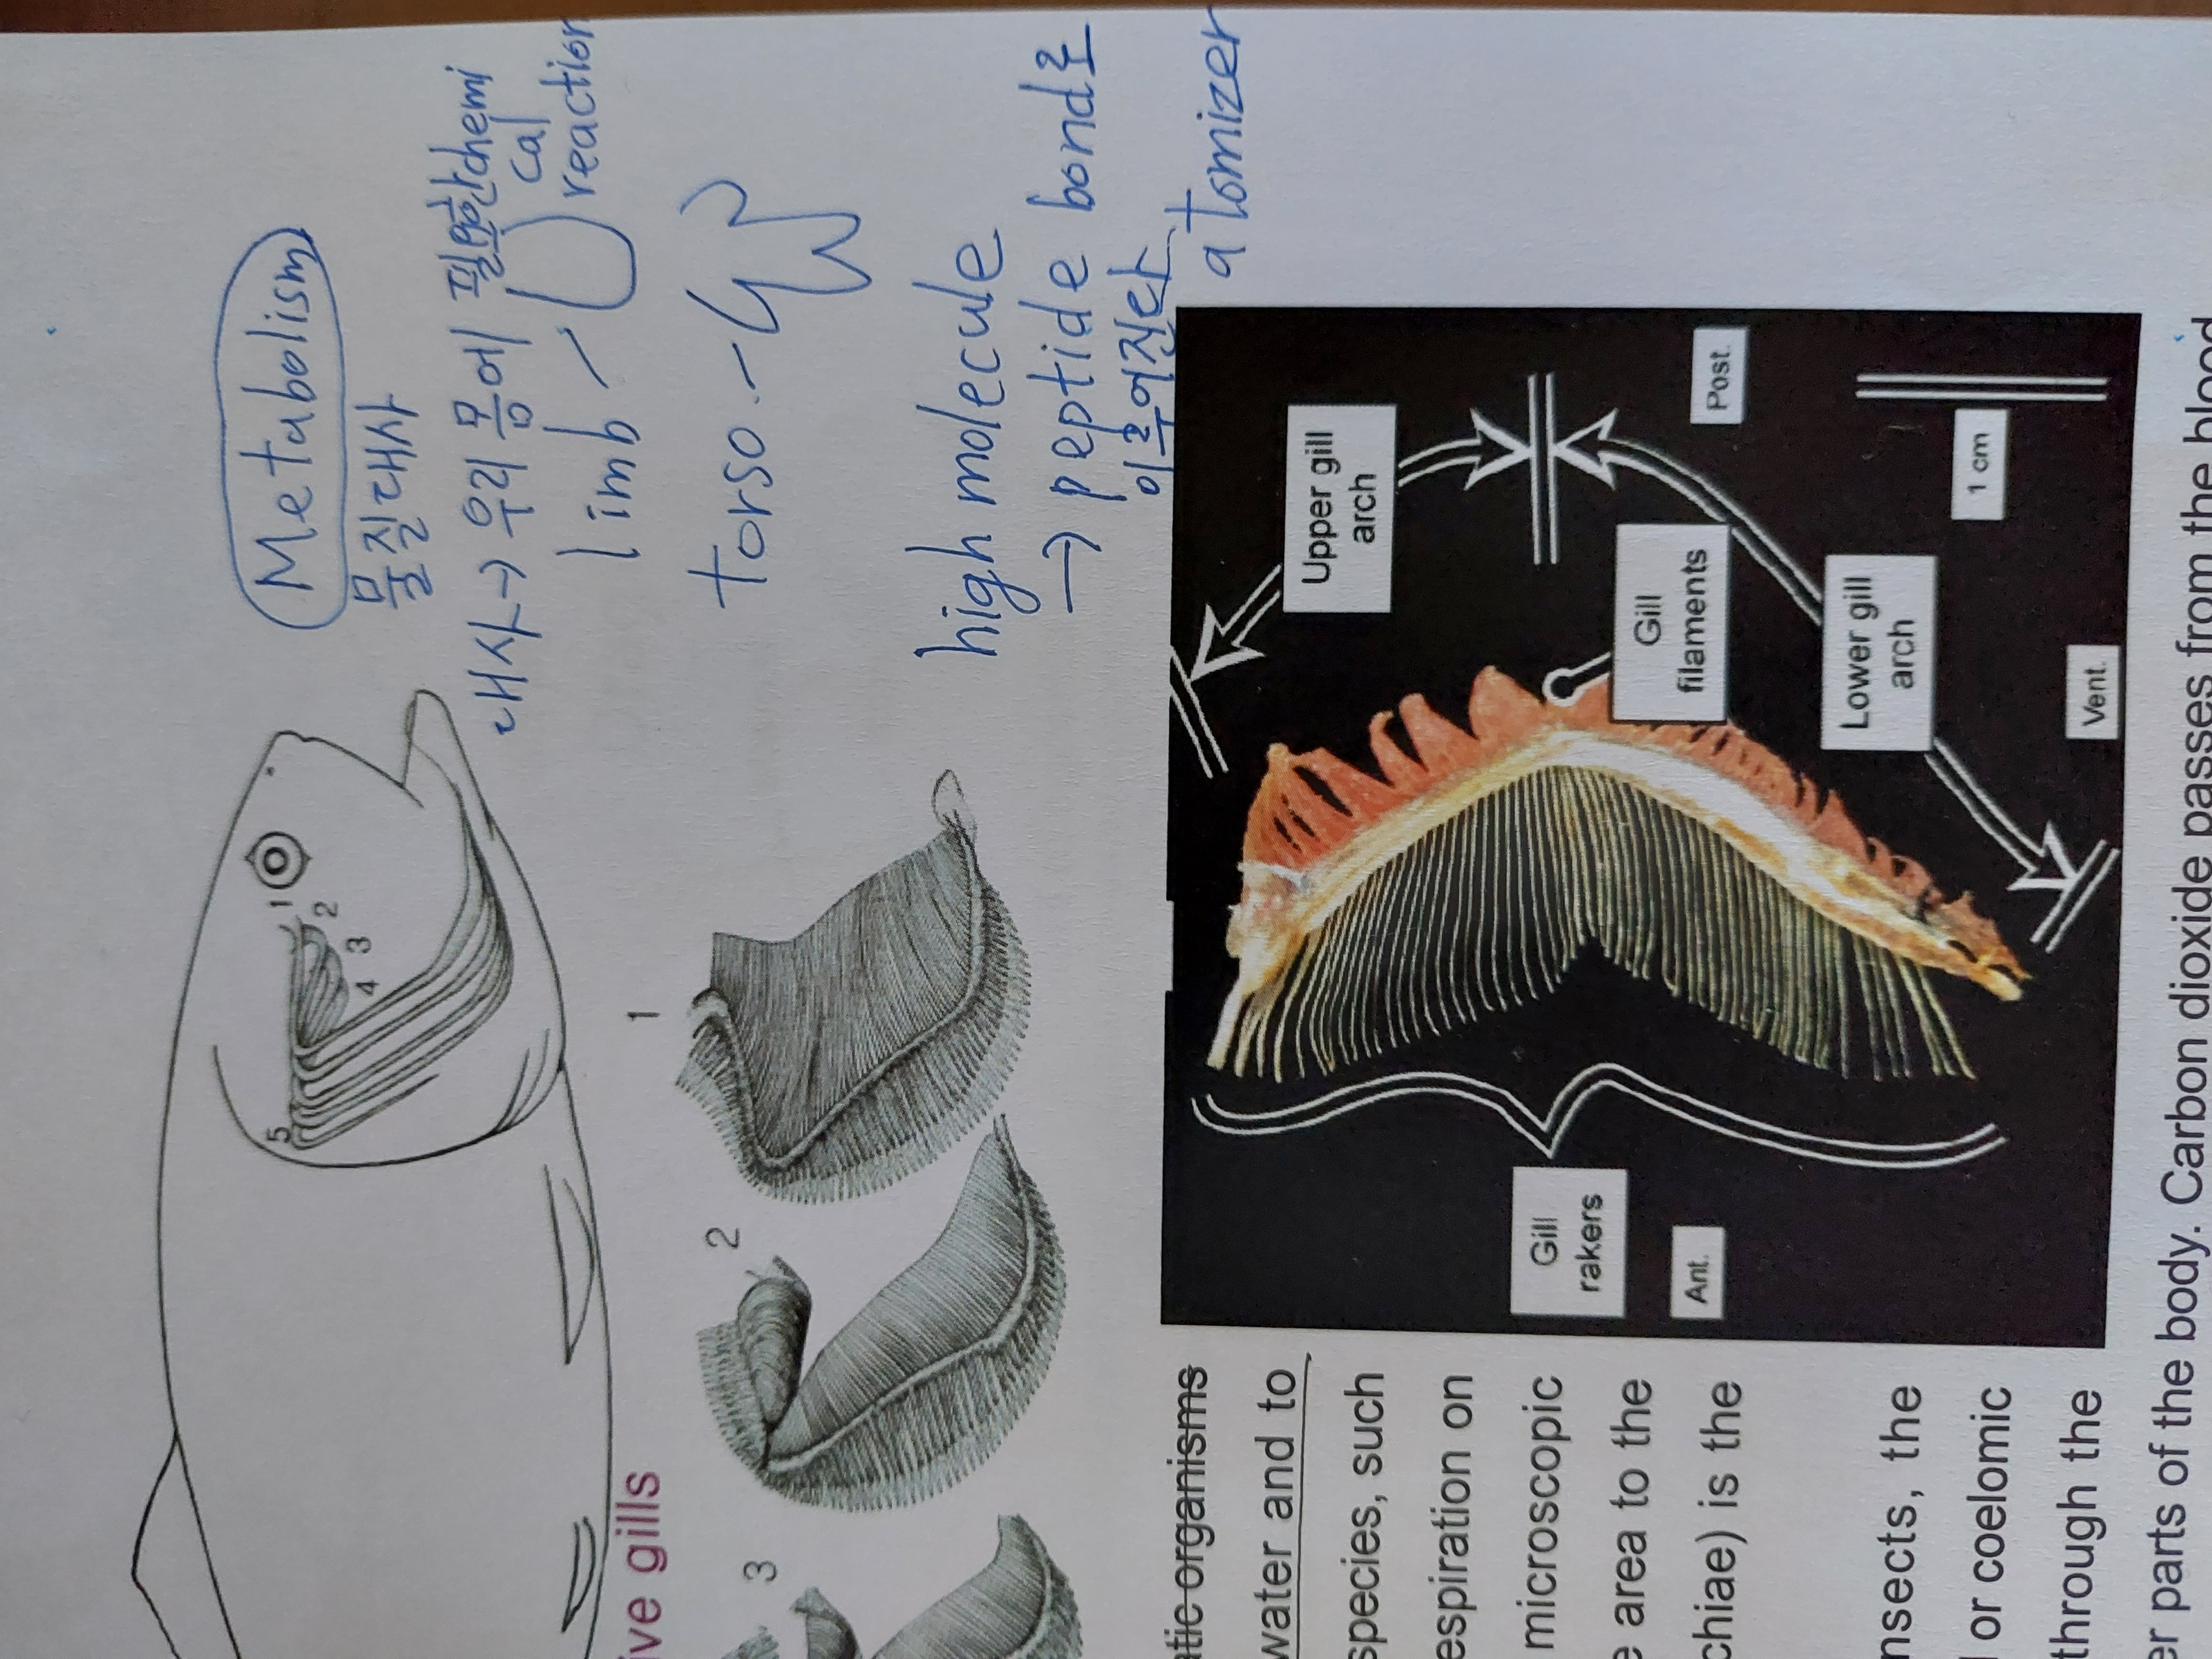 Metabolism
물질대사
대사→ 우리 몸에 필요한 chemi
cal
reaction
limb -
torso. -
high molecule
→ peptide bond로
이루어진다
atomizer
1
2
3
4
5
1
2
3
ive gills
Upper gill
arch
Post.
Gill
filaments
Gill
rakers
Lower gill
arch
1 cm
Ant.
Vent.
atic organisms
water and to
species, such
espiration on
microscopic
e area to the
chiae) is the
nsects, the
l or coelomic
through the
er parts of the body. Carbon dioxide passes from the blood